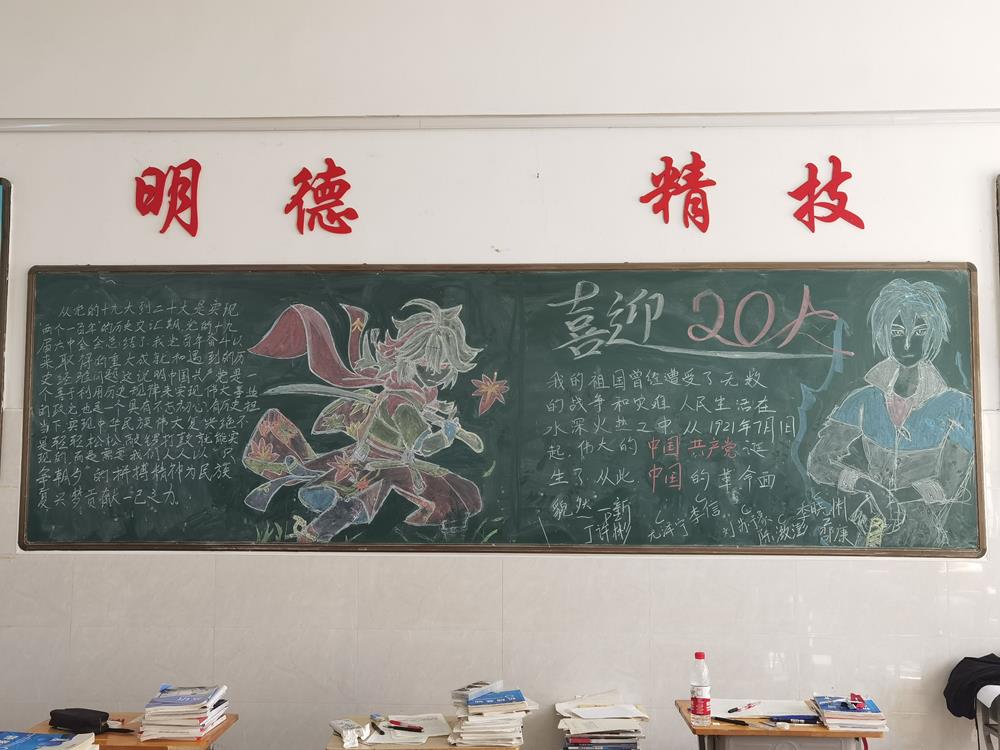 明 德 精 技
从党的十九大到二十大是实现
"两个一百年"的历史交汇期,党的十九
届六中全会总结了我党百年奋斗以
来取得的重大成就和遇到的历
史经验问题这说明中国共产党是
一个善于利用历史规律来实现伟大事业
的政党也是一个具有不忘初心有历史担
当下实现中华民族伟大复兴绝不
是轻轻松松敲锣打鼓就能实
现的而是需要我们人人以"只
争朝夕"的拼搏精神为民族
复兴梦贡献一己之力.
喜迎 20大
我的祖国曾经遭受了无数
的战争和灾难 人民生活在
水深火热之中.从1921年7月1日
起.伟大的中国共产党诞
生了.从此.中国的革命面
貌焕一新
李信
康